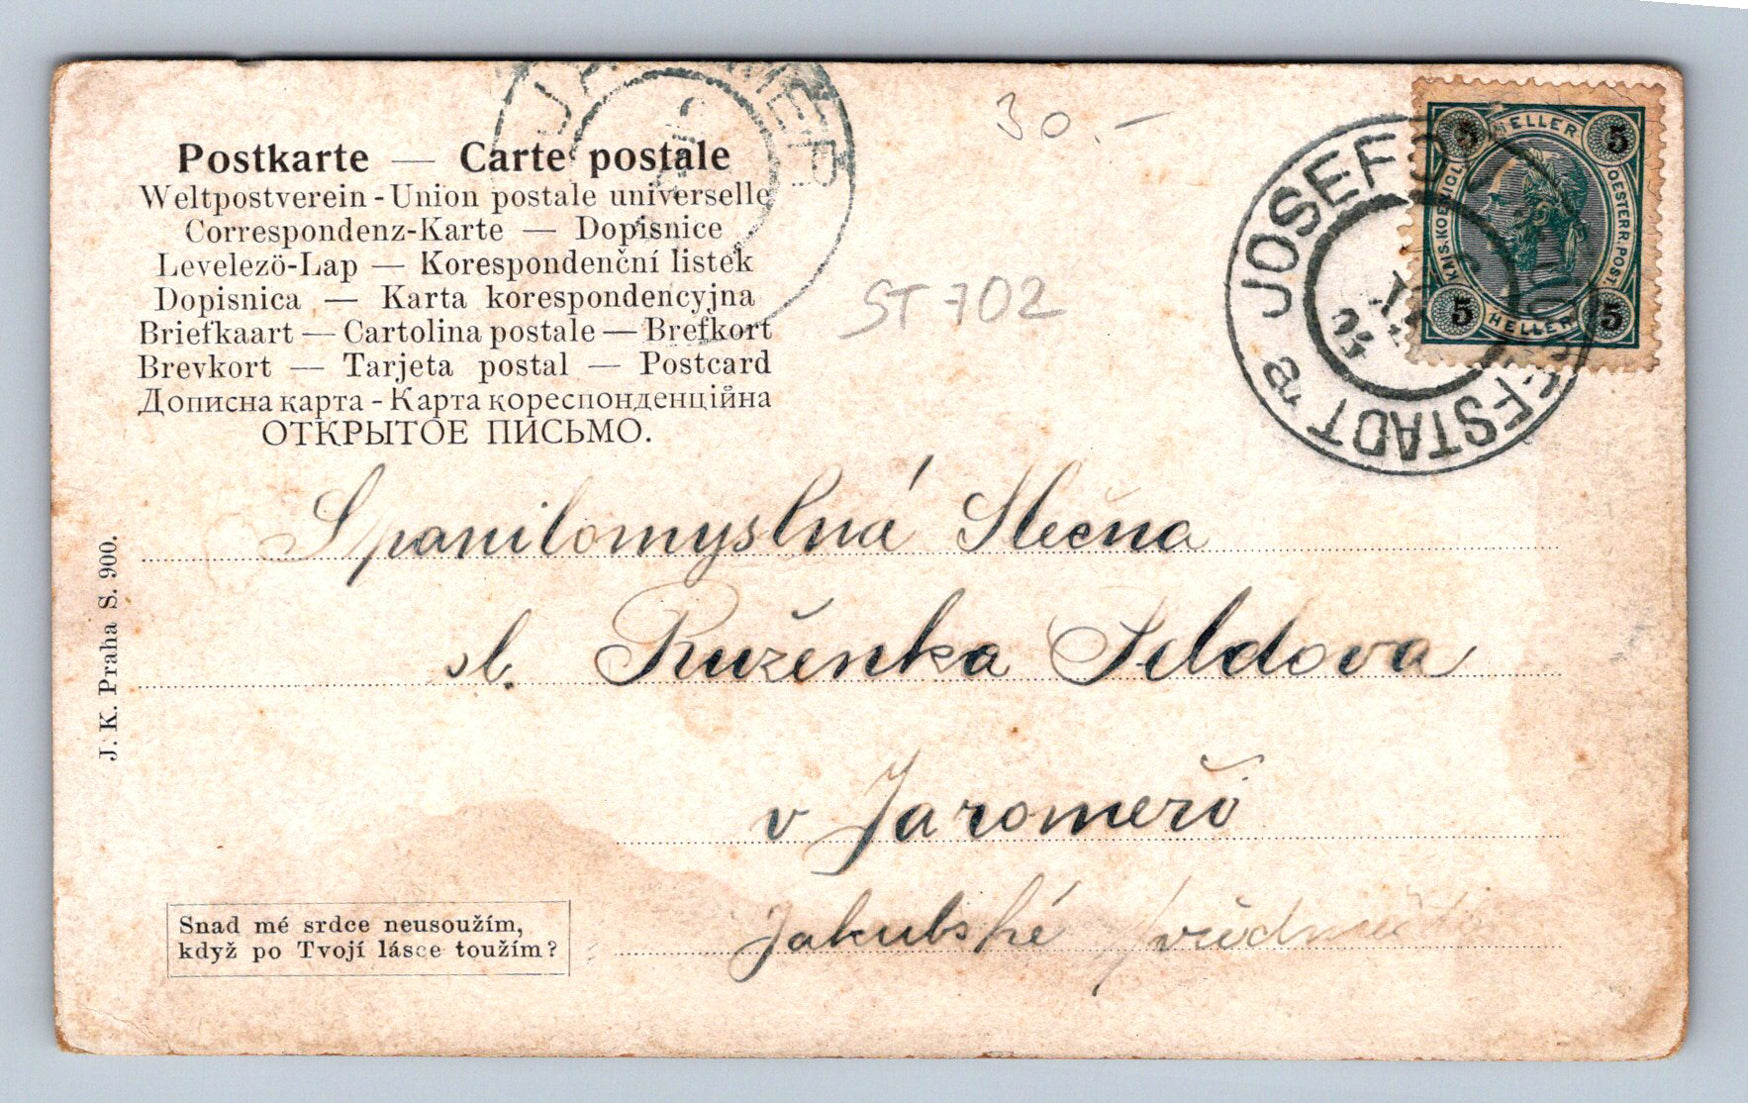 Postkarte — Carte postale
Weltpostverein - Union postale universelle
Correspondenz-Karte — Dopisnice
Levelezö-Lap — Korespondenční listek
Dopisnica — Karta korespondencyjna
Briefkaart — Cartolina postale — Brefkort
Brevkort — Tarjeta postal — Postcard
Дописна карта - Карта кореспонденційна
ОТКРЫТОЕ ПИСЬМО.
30.—
ST 702
5 HELLER 5
OESTERR. POST.
5 HELLER 5
JOSEFOV
JOSEFSTADT a
Spanilomyslná Slečna
sl. Ruženka Seldova
v Jaroměři
Jakubské
J. K. Praha S. 900.
Snad mé srdce neusoužím,
když po Tvojí lásce toužím?